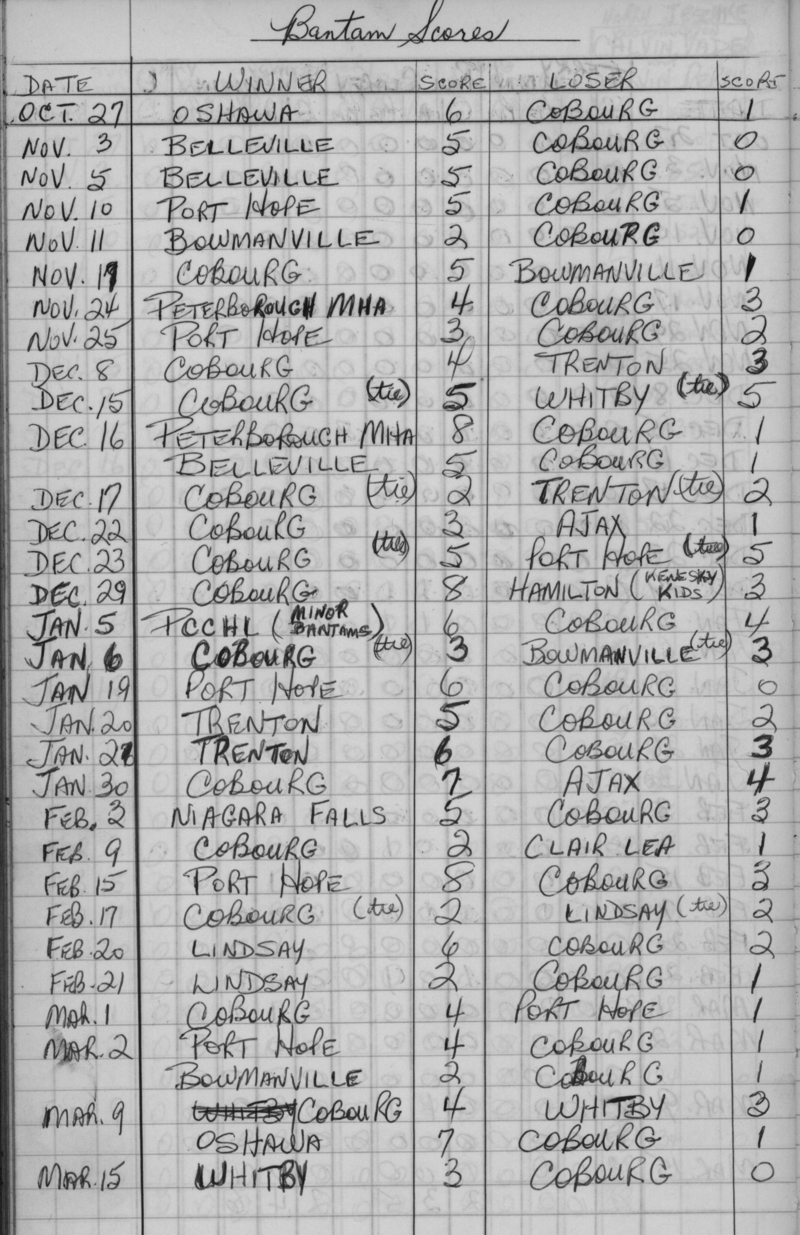 Bantam Scores
DATE WINNER SCORE LOSER SCORE
OCT. 27 OSHAWA 6 COBOURG 1
NOV. 3 BELLEVILLE 5 COBOURG 0
NOV. 5 BELLEVILLE 5 COBOURG 0
NOV. 10 PORT HOPE 5 COBOURG 1
NOV. 11 BOWMANVILLE 2 COBOURG 0
NOV. 19 COBOURG 5 BOWMANVILLE 1
NOV. 24 PETERBOROUGH MHA 4 COBOURG 3
NOV. 25 PORT HOPE 3 COBOURG 2
DEC. 8 COBOURG 4 TRENTON 3
DEC. 15 COBOURG (tie) 5 WHITBY (tie) 5
DEC. 16 PETERBOROUGH MHA 8 COBOURG 1
BELLEVILLE 5 COBOURG 1
DEC. 17 COBOURG (tie) 2 TRENTON (tie) 2
DEC. 22 COBOURG 3 AJAX 1
DEC. 23 COBOURG (tie) 5 PORT HOPE (tie) 5
DEC. 29 COBOURG 8 HAMILTON (KENESKY KIDS) 3
JAN. 5 PCCHL (MINOR BANTAMS) 6 COBOURG 4
JAN. 6 COBOURG (tie) 3 BOWMANVILLE (tie) 3
JAN 19 PORT HOPE 6 COBOURG 0
JAN. 20 TRENTON 5 COBOURG 2
JAN. TRENTON 6 COBOURG 3
JAN. 30 COBOURG 7 AJAX 4
FEB. 3 NIAGARA FALLS 5 COBOURG 3
FEB. 9 COBOURG 2 CLAIR LEA 1
FEB. 15 PORT HOPE 8 COBOURG 3
FEB. 17 COBOURG (tie) 2 LINDSAY (tie) 2
FEB. 20 LINDSAY 6 COBOURG 2
FEB. 21 LINDSAY 2 COBOURG 1
MAR. 1 COBOURG 4 PORT HOPE 1
MAR. 2 PORT HOPE 4 COBOURG 1
BOWMANVILLE 2 COBOURG 1
MAR. 9 COBOURG 4 WHITBY 3
OSHAWA 7 COBOURG 1
MAR. 15 WHITBY 3 COBOURG 0